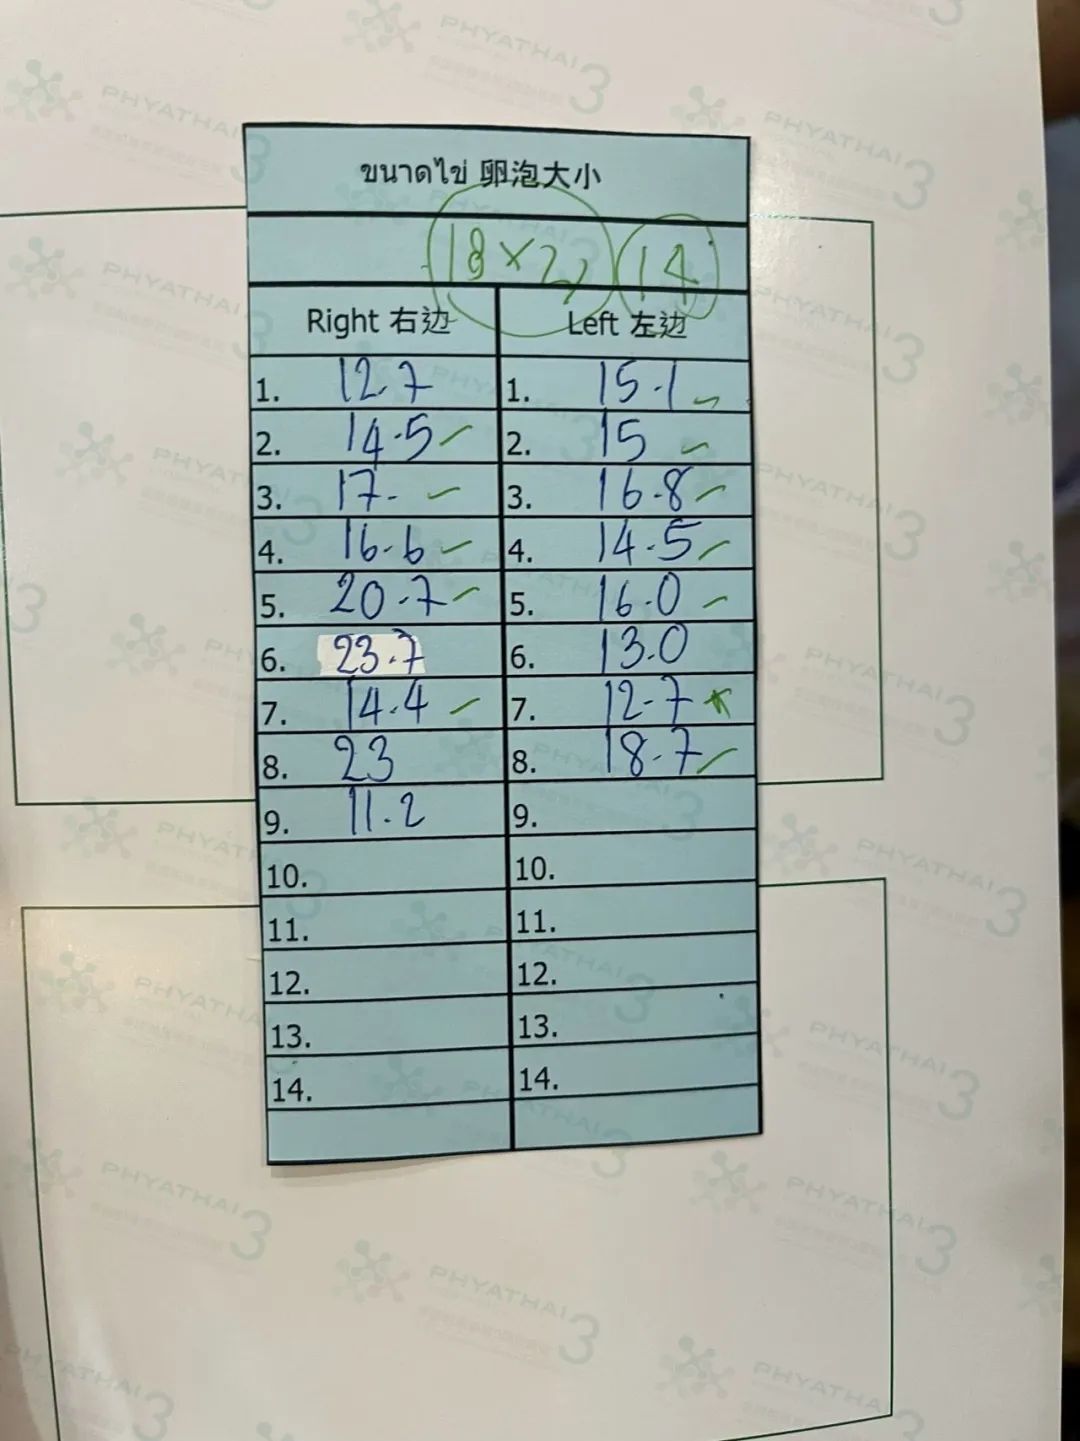 ขนาดไข่ 卵泡大小
18×2, 14
Right 右边 Left 左边
1. 12.7 1. 15.1
2. 14.5 2. 15
3. 17- 3. 16.8
4. 16.6 4. 14.5
5. 20.7 5. 16.0
6. 23.7 6. 13.0
7. 14.4 7. 12.7
8. 23 8. 18.7
9. 11.2 9.
10. 10.
11. 11.
12. 12.
13. 13.
14. 14.
PHYATHAI 3